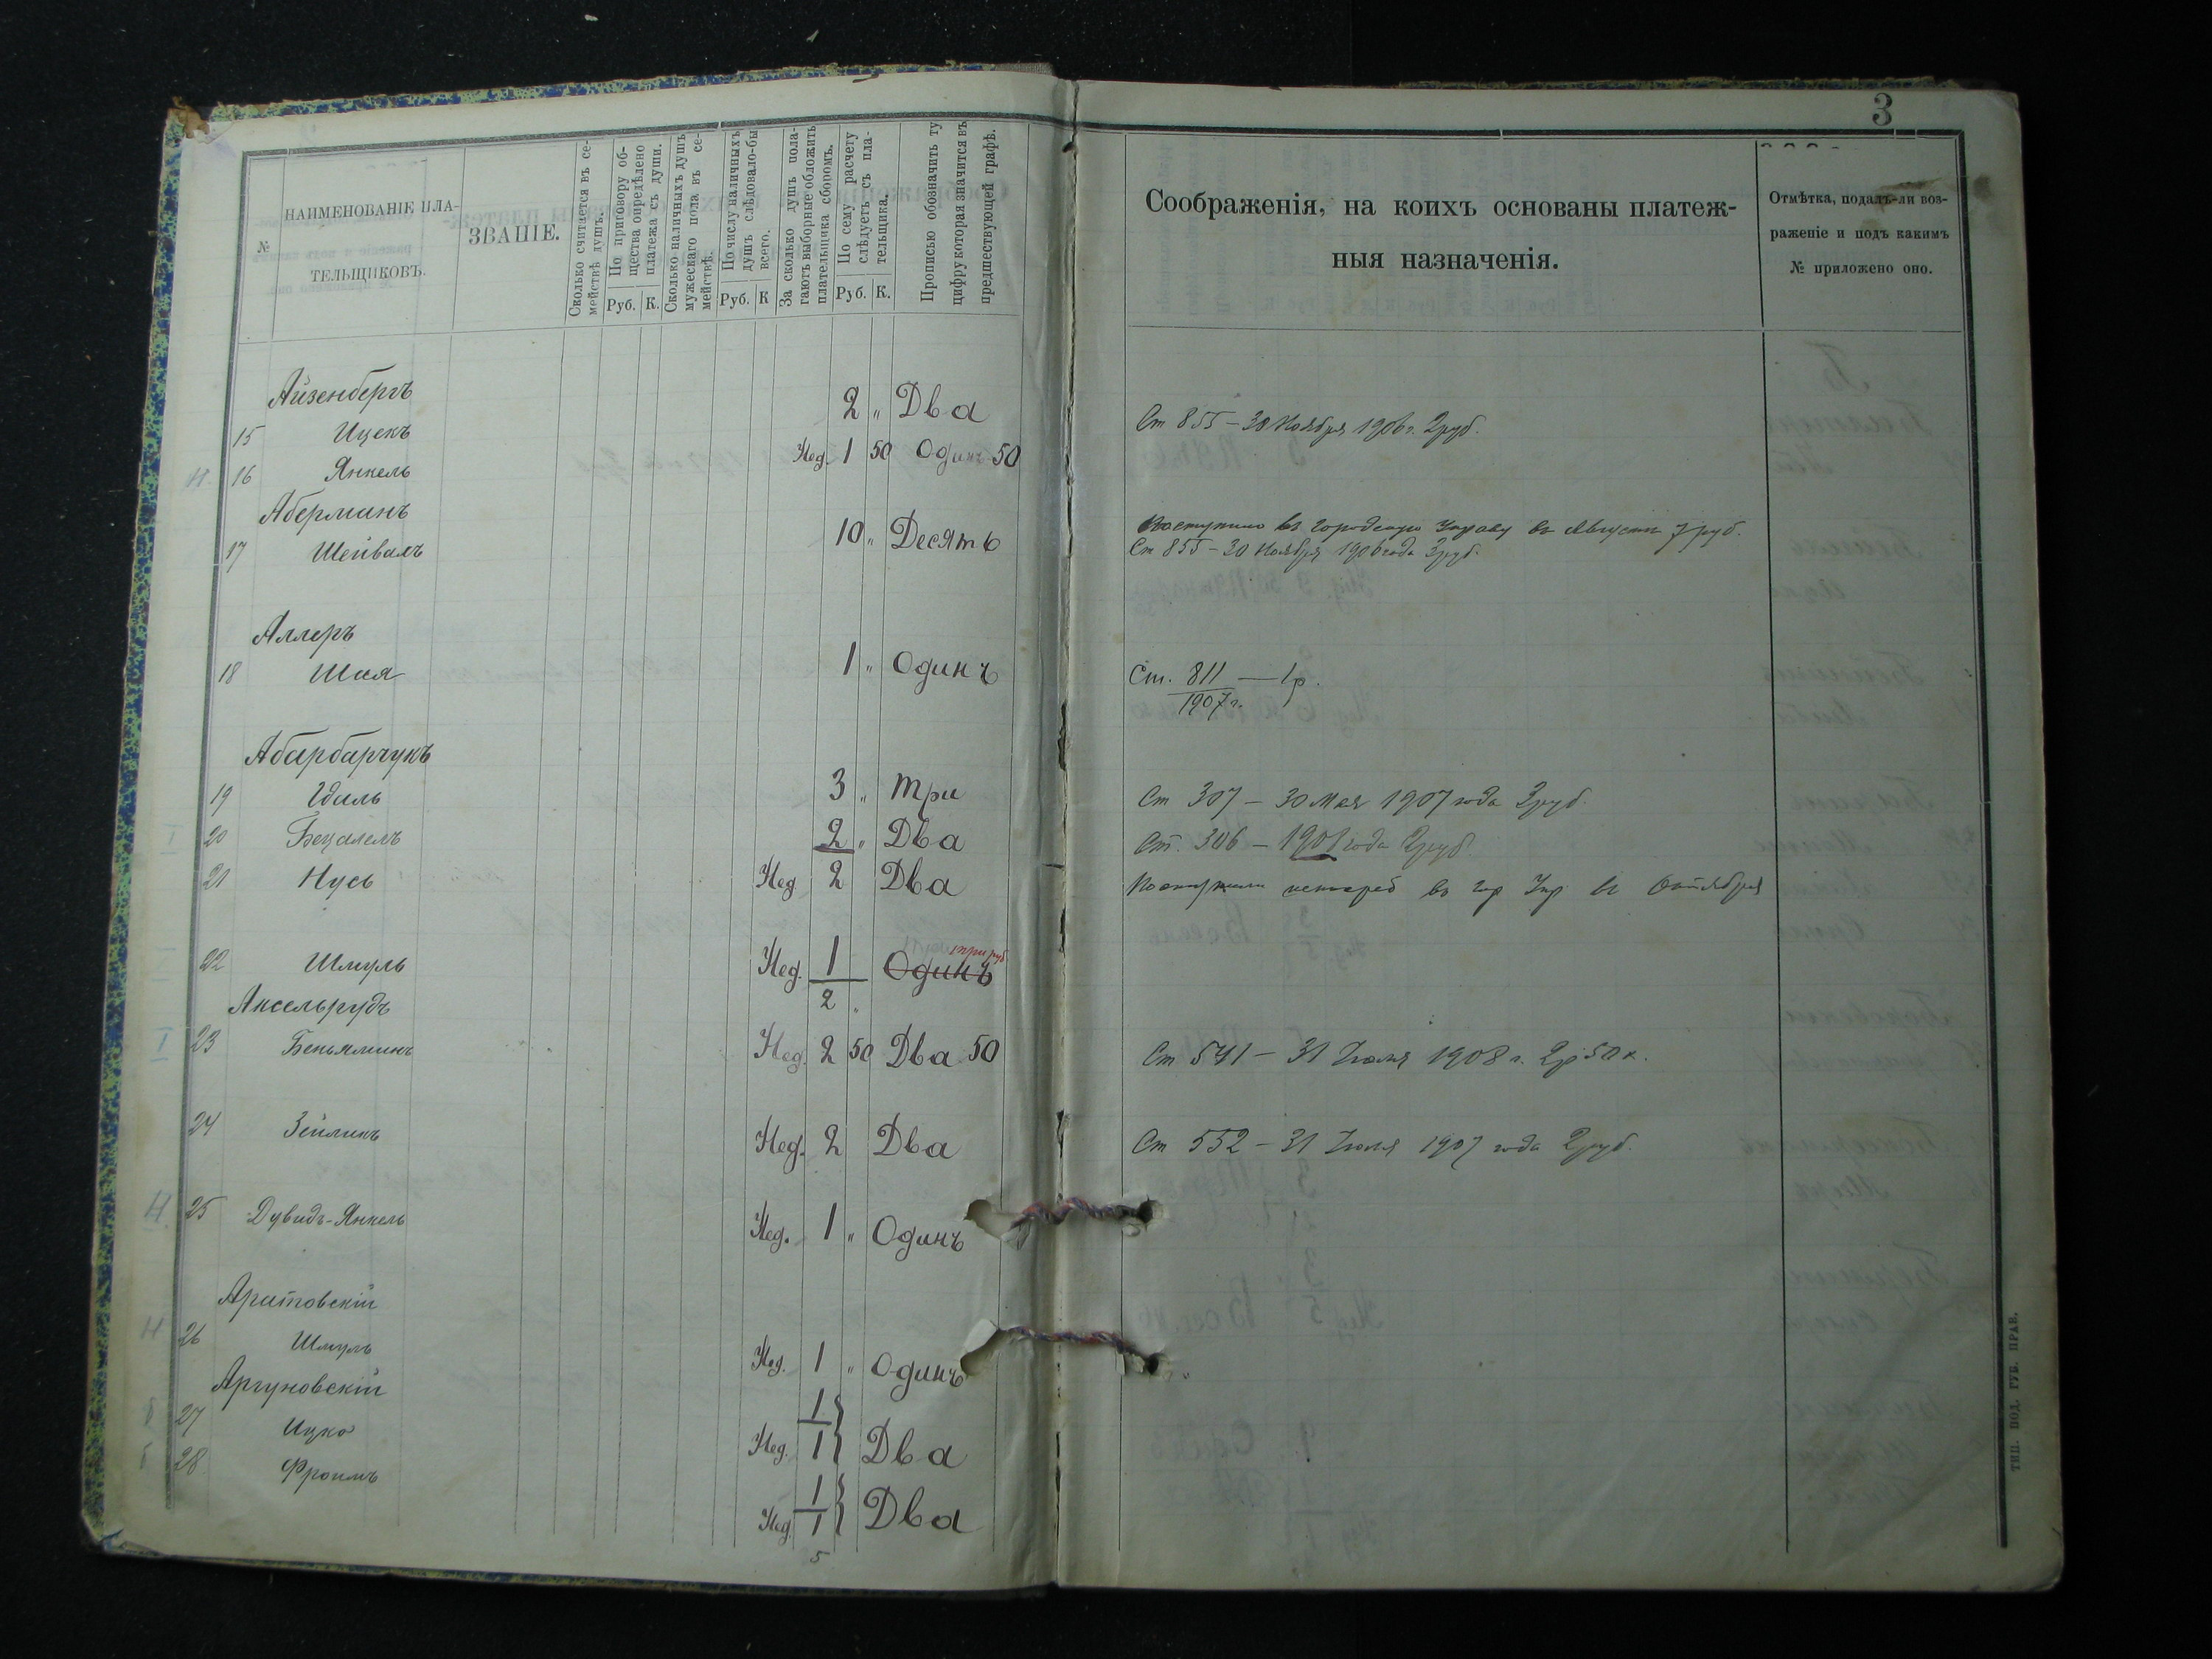 3
№
НАИМЕНОВАНІЕ ПЛА-
ТЕЛЬЩИКОВЪ.
ЗВАНІЕ.
Сколько считается въ се-
мействѣ душъ.
По приговору об-
щества опредѣлено
платежа съ души.
Руб. К.
Сколько наличныхъ душъ
мужескаго пола въ се-
мействѣ.
По числу наличныхъ
душъ слѣдовало-бы
всего.
Руб. К
За сколько душъ пола-
гаютъ выборные обложить
плательщика сборомъ.
По сему расчету
слѣдуетъ съ пла-
тельщика.
Руб. К.
Прописью обозначить ту
цифру которая значится въ
предшествующей графѣ.
Соображенія, на коихъ основаны платеж-
ныя назначенія.
Отмѣтка, подалъ-ли воз-
раженіе и подъ какимъ
№ приложено оно.
Айзенбергъ
15 Ицекъ 2 „ Два Ст 855 – 30 Ноября 1906 г. 2 руб.
Н. 16 Янкель Нед. 1 50 Одинъ 50
Аберманъ
17 Шейвалъ 10 „ Десять Поступило въ городскую Управу въ Августѣ 7 руб.
Ст 855 – 30 Ноября 1906 года 3 руб.
Аллеръ
18 Шая 1 „ Одинъ Ст. 811 — 1 р.
1907 г.
Абарбарчукъ
19 Идаль 3 „ Три Ст 307 – 30 Мая 1907 года 3 руб.
20 Бецалелъ 2 „ Два Ст. 306 – 1907 года 2 руб.
21 Нусь Нед 2 Два въ гор Упр Октября
три руб
22 Шмуль Нед. 1 Одинъ
2 „
Аксельрудъ
I 23 Беньяминъ Нед. 2 50 Два 50 Ст 541 – 31 Іюля 1908 г. 2 р 50 к.
24 Зейликъ Нед. 2 Два Ст 552 – 31 Іюля 1907 года 2 руб.
Н. 25 Дувидъ-Янкель Нед. 1 „ Одинъ
Аратовскій
Н 26 Шмуль Нед. 1 „ Одинъ
Аргуновскій
27 Ицко 1
Нед. 1 Два
28 Фроимъ 1
Нед. 1 Два
5
ТИП. ПОД. ГУБ. ПРАВ.